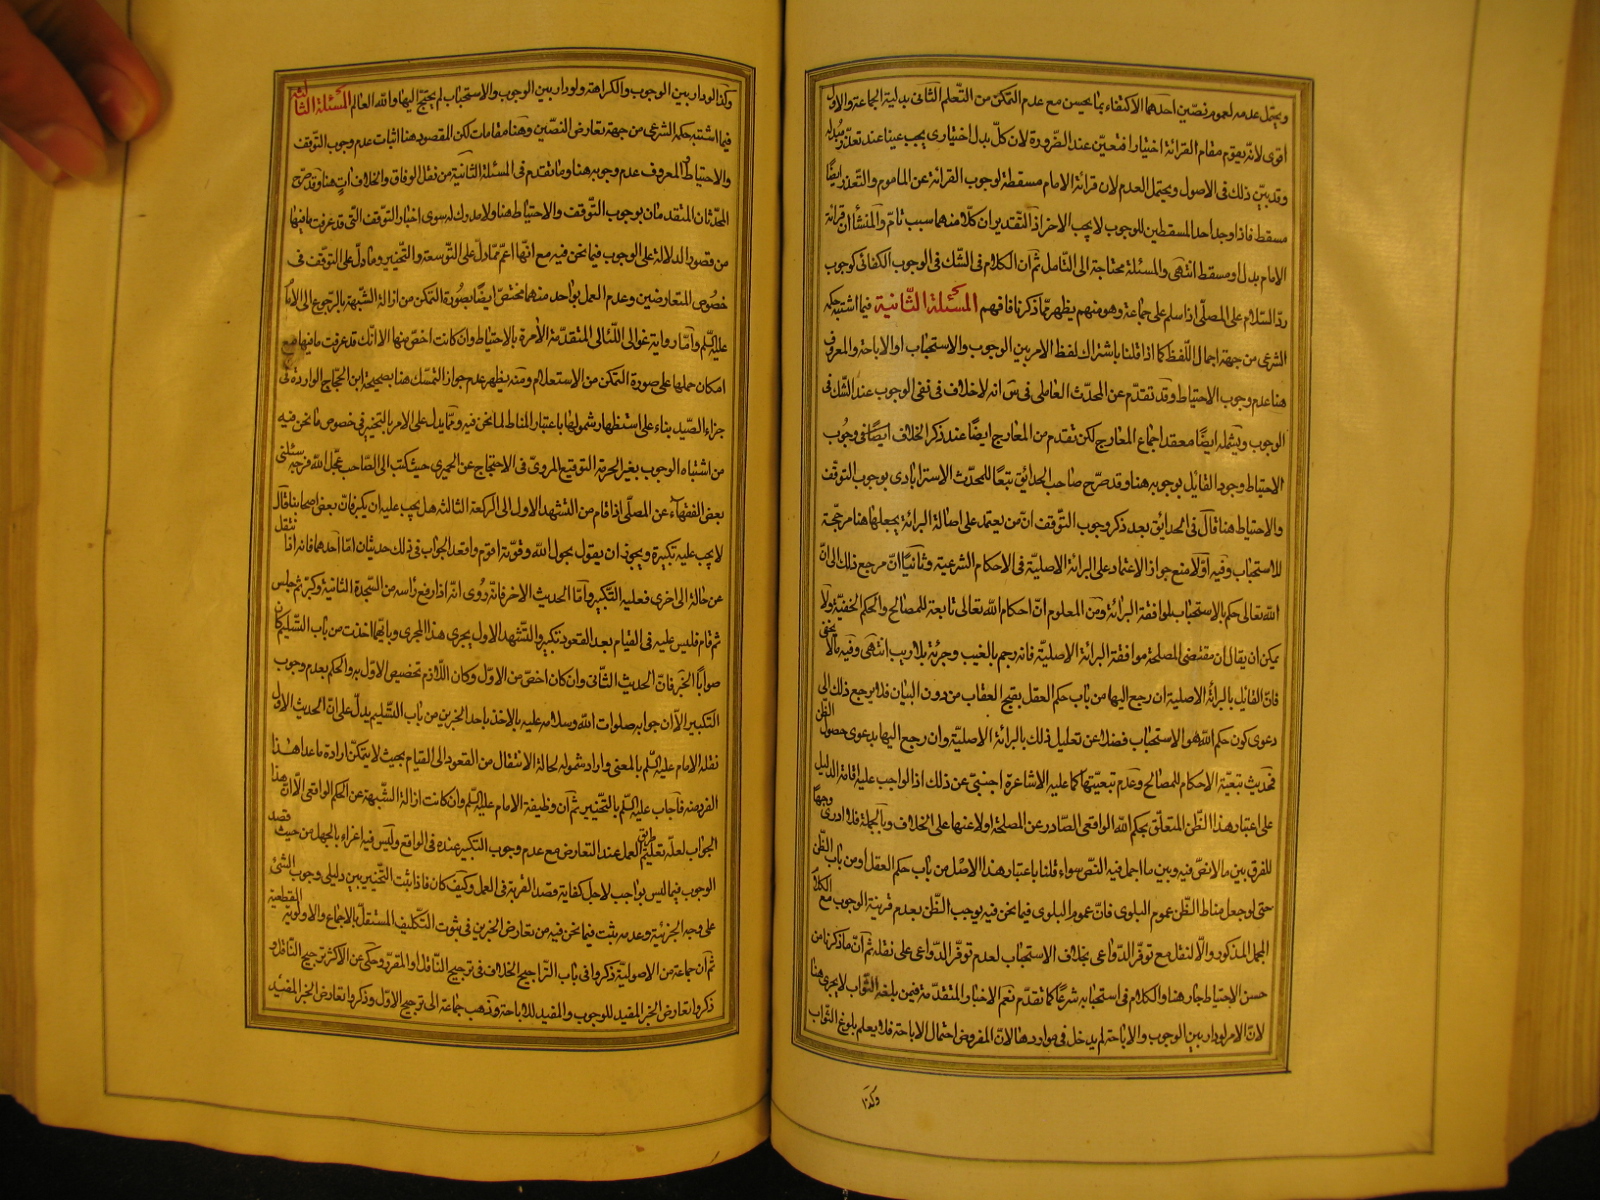 ويحتمل عدمه لعموم نصّين احدهما الاكتفاء بما يحسن مع عدم التمكن من التّعلم الثانى بدلية الجماعة والاول
اقوى لانه يقوم مقام القرائة اختيارا فتعيّن عند الضّرورة لان كلّ بدل اختيارى يجب عينا عند تعذّر مبدله
وقد بيّن ذلك فى الاصول ويحتمل العدم لان قرائة الامام مسقطة لوجوب القرائة عن الماموم والتّعذر ايضًا
مسقط فاذا وجد احد المسقطين للوجوب لا يجب الاخر اذ التّقدير ان كلا منهما سبب تامّ والمنشأ ان قرائة
الامام بدل او مسقط انتهى والمسئلة محتاجة الى التّامل ثم ان الكلام فى الشّك فى الوجوب الكفائى كوجوب
ردّ السّلام على المصلّى اذا سلم على جماعة وهو منهم يظهر ممّا ذكرنا فافهم المسئلة الثّانية فيما اشتبه حكمه
الشرعى من جهة اجمال اللّفظ كما اذا قلنا باشتراك لفظ الامر بين الوجوب والاستحباب او الاباحة والمعروف
هنا عدم وجوب الاحتياط وقد تقدّم عن المحدّث العاملى فى س انه لا خلاف فى نفى الوجوب عند الشّك فى
الوجوب ويشمله ايضًا معقد اجماع المعارج لكن تقدم من المعارج ايضًا عند ذكر الخلاف ايضًا فى وجُوب
الاحتياط وجود القائل بوجوبه هنا وقد صرّح صاحب الحدائق تبعًا للمحدّث الاسترابادى بوجوب التوقّف
والاحتياط هنا قال فى الحدائق بعد ذكر وجوب التّوقف انّ من يعتمد على اصالة البرائة يجعلها هنا مرجّحة
للاستحباب وفيه اوّلا منع جواز الاعتماد على البرائة الاصليّة فى الاحكام الشرعية وثانيًا انّ مرجع ذلك الى انّ
الله تعالى حكم بالاستحباب لموافقة البرائة ومن المعلوم انّ احكام الله تعالى تابعة للمصالح والحكم الخفيّة ولا
يمكن ان يقال ان مقتضى المصلحة موافقة البرائة الاصليّة فانه رجم بالغيب وجرئة بلا ريب انتهى وفيه ما لا يخفى
فان القائل بالبرائة الاصلية ان رجع اليها من باب حكم العقل بقبح العقاب من دون البيان فلا يرجع ذلك الى
دعوى كون حكم الله هو الاستحباب فضلا عن تعليل ذلك بالبرائة الاصليّة وان رجع اليها بدعوى حصول الظّن
فحديث تبعيّة الاحكام للمصالح وعدم تبعيّتها كما عليه الاشاعرة اجنبىّ عن ذلك اذ الواجب عليه اقامة الدّليل
على اعتبار هذا الظّن المتعلّق بحكم الله الواقعى الصّادر عن المصلحة او لا عنها على الخلاف وبالجملة فلا ادرى وجهًا
للفرق بين ما لا نصّ فيه وبين ما اجمل فيه النّص سواء قلنا باعتبار هذا الاصل من باب حكم العقل او من باب الظّن
حتى لو جعل مناط الظّن عموم البلوى فانّ عموم البلوى فيما نحن فيه يوجب الظّن بعدم قرينة الوجوب مع الكلام
المجمل المذكور والّا لنقل مع توفّر الدّواعى بخلاف الاستحباب لعدم توفّر الدّواعى على نقله ثم انّ ما ذكرنا من
حسن الاحتياط جار هنا والكلام فى استحبابه شرعًا كما تقدّم نعم الاخبار المتقدّمة فيمن بلغه الثّواب لا يجرى هنا
لانّ الامر لو دار بين الوجوب والاباحة لم يدخل فى مواردها لانّ المفروض احتمال الاباحة فلا يعلم بلوغ الثّواب
وكذا
وكذا لو دار بين الوجوب والكراهة ولو دار بين الوجوب والاستحباب لم يحتج اليها والله العالم المسئلة الثّالثة
فيما اشتبه حكمه الشرعى من جهة تعارض النصّين وهنا مقامات لكن المقصود هنا اثبات عدم وجوب التّوقف
والاحتياط والمعروف عدم وجوبه هنا وما تقدم فى المسئلة الثّانية من نقل الوفاق والخلاف اتٍ هنا وقد صرّح
المحدّثان المتقدمان بوجوب التّوقف والاحتياط هنا ولا مدرك له سوى اخبار التّوقف التّى قد عرفت ما فيها
من قصور الدلالة على الوجوب فيما نحن فيه مع انّها اعمّ ممّا دلّ على التّوسعة والتّخيير وما دلّ على التوقّف فى
خصُوص المتعارضين وعدم العمل بواحد منهما مختصّ ايضًا بصُورة التمكن من ازالة الشّبهة بالرّجوع الى الامام
عليه السّلم وامّا رواية غوالى اللّئالى المتقدّمة الامرة بالاحتياط وان كانت اخصّ منها الّا انّك قد عرفت ما فيها مع
امكان حملها على صورة التمكن من الاستعلام ومنه يظهر عدم جواز التمسّك هنا بصحيحة ابن الحجّاج الواردة فى
جزاء الصّيد بناء على استظهار شمولها باعتبار المناط لما نحن فيه وممّا يدل على الامر بالتخيير فى خصوص ما نحن فيه
من اشتباه الوجوب بغير الحرمة التوقيع المروىّ فى الاحتجاج عن الحميرى حيث كتب الى الصّاحب عجّل الله فرجه سئلنى
بعض الفقهاء عن المصلّى اذا قام من التشهّد الاول الى الركعة الثالثة هل يجب عليه ان يكبر فانّ بعض اصحابنا قال
لا يجب عليه تكبيرة ويجوز ان يقول بحول الله وقوّته اقوم واقعد الجواب فى ذلك حديثان امّا احدهما فانه اذا انتقل
عن حالة الى اخرى فعليه التّكبير وامّا الحديث الاخر فانّه رُوى انّه اذا رفع راسه من السّجدة الثانية وكبّر ثم جلس
ثم قام فليس عليه فى القيام بعد القعود تكبير والتّشهد الاول يجرى هذا المجرى وبايّهما اخذت من باب التّسليم كان
صوابًا الخبر فانّ الحديث الثّانى وان كان اخصّ من الاوّل وكان اللّازم تخصيص الاوّل به والحكم بعدم وجوب
التكبير الّا ان جوابه صلوات الله وسلامه عليه بالاخذ باحد الخبرين من باب التّسليم يدلّ على انّ الحديث الاول
نقله الامام عليه السّلم بالمعنى واراد شموله لحالة الانتقال من القعود الى القيام بحيث لا يتمكّن ارادة ما عدا هذا
الفرد منه فاجاب عليه السّلم بالتّخيير ثم ان وظيفة الامام عليه السّلم وان كانت ازالة الشّبهة عن الحكم الواقعى الّا انّ هذا
الجوٰاب لعلّه تعليم طريق العمل عند التعارض مع عدم وجوب التّكبير عنده فى الواقع وليس فيه اغراء بالجهل من حيث قصد
الوجوب فيما ليس بواجب لاجل كفاية قصد القربة فى العمل وكيف كان فاذا ثبت التّخيير بين دليلى وجوب الشّئ
على وجه الجزئية وعدمه يثبت فيما نحن فيه من تعارض الخبرين فى ثبوت التّكليف المستقلّ بالاجماع والاولويّة القطعية
ثم ان جماعة من الاصوليّة ذكروا فى باب التّراجيح الخلاف فى ترجيح النّاقل او المقرّر وحكى عن الاكثر ترجيح النّاقل و
ذكروا تعارض الخبر المفيد للوجوب والمفيد للاباحة وذهب جماعة الى ترجيح الاوّل وذكروا تعارض الخبر المفيد